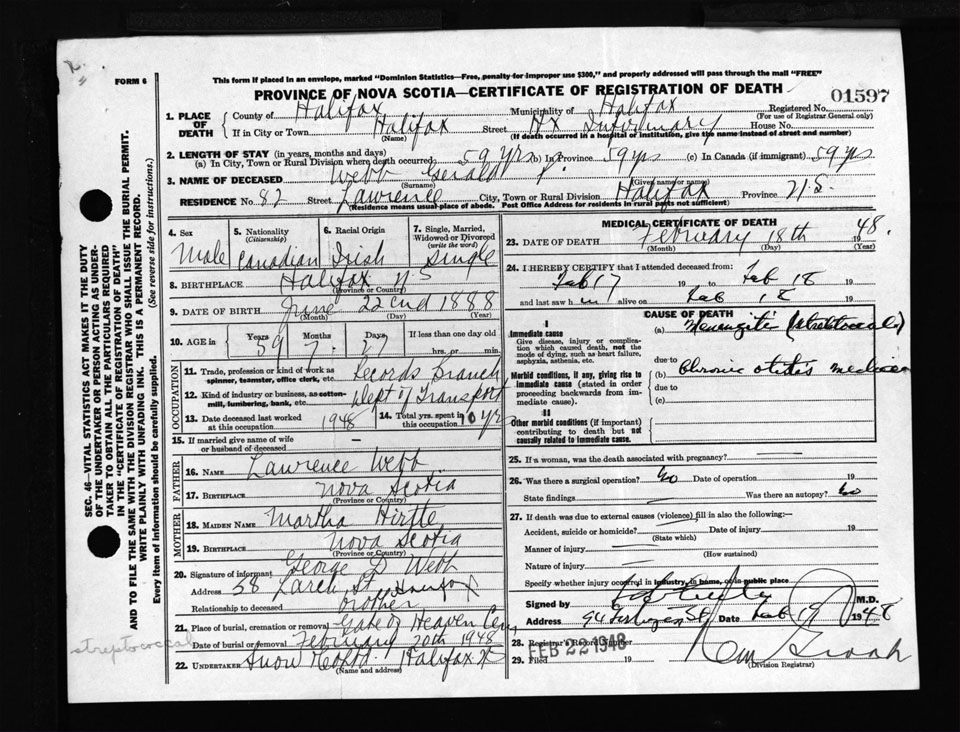 FORM 6
This form if placed in an envelope, marked "Dominion Statistics—Free, penalty for improper use $300," and properly addressed will pass through the mail "FREE"
PROVINCE OF NOVA SCOTIA—CERTIFICATE OF REGISTRATION OF DEATH
01597
1. PLACE OF DEATH
County of Halifax Municipality of Halifax Registered No.
(For use of Registrar General only)
If in City or Town Halifax Street Hx Infirmary House No.
(Name) (If death occurred in a hospital or institution, give the name instead of street and number)
2. LENGTH OF STAY (in years, months and days)
(a) In City, Town or Rural Division where death occurred 59 yrs (b) in Province 59 ys (c) In Canada (if immigrant) 59 ys
3. NAME OF DECEASED Webb Gerald
(Surname) (Given name or names)
RESIDENCE No. 82 Street Lawrence City, Town or Rural Division Halifax Province N.S.
(Residence means usual place of abode. Post Office Address for residents in rural parts not sufficient)
4. Sex Male
5. Nationality (Citizenship) Canadian
6. Racial Origin Irish
7. Single, Married, Widowed or Divorced (write the word) Single
8. BIRTHPLACE Halifax N.S
(Province or Country)
9. DATE OF BIRTH June 22nd 1888
(Month) (Day) (Year)
10. AGE in Years 59 Months 7 Days 27 If less than one day old
hrs. or min.
OCCUPATION
11. Trade, profession or kind of work as spinner, teamster, office clerk, etc. Records Branch
12. Kind of industry or business, as cotton-mill, lumbering, bank, etc. Dept of Transport
13. Date deceased last worked at this occupation 1948
14. Total yrs. spent in this occupation 10 yr
15. If married give name of wife or husband of deceased —
FATHER
16. NAME Lawrence Webb
17. BIRTHPLACE Nova Scotia
(Province or Country)
MOTHER
18. MAIDEN NAME Martha Hirtle
19. BIRTHPLACE Nova Scotia
(Province or Country)
20. Signature of informant George D Webb
Address 38 Larch St Halifax
Relationship to deceased brother
21. Place of burial, cremation or removal Gate of Heaven Cem
Date of burial or removal February 20th 1948
22. UNDERTAKER Snow Halifax NS
(Name and address)
MEDICAL CERTIFICATE OF DEATH
23. DATE OF DEATH February 18th 1948.
(Month) (Day) (Year)
24. I HEREBY CERTIFY that I attended deceased from:
Feb 17 19 to Feb 18 19
and last saw him alive on Feb 18 19
CAUSE OF DEATH
I
Immediate cause
Give disease, injury or complication which caused death, not the mode of dying, such as heart failure, asphyxia, asthenia, etc.
(a) Meningitis (streptococcal)
due to
Morbid conditions, if any, giving rise to immediate cause (stated in order proceeding backwards from immediate cause).
(b) Chronic otitis media
due to
(c)
II
Other morbid conditions (if important) contributing to death but not causally related to immediate cause.
25. If a woman, was the death associated with pregnancy? —
26. Was there a surgical operation? No Date of operation 19
State findings — Was there an autopsy? No
27. If death was due to external causes (violence) fill in also the following:—
Accident, suicide or homicide? Date of injury 19
(State which)
Manner of injury
(How sustained)
Nature of injury
Specify whether injury occurred in industry, in home, or in public place
Signed by M.D.
Address 94 St. Date Feb 19 1948
28. Registrar's Record No.
29. Filed FEB 22 1948 19
(Division Registrar)
SEC. 46—VITAL STATISTICS ACT MAKES IT THE DUTY
OF THE UNDERTAKER OR PERSON ACTING AS UNDERTAKER TO OBTAIN ALL THE PARTICULARS REQUIRED
IN THE "CERTIFICATE OF REGISTRATION OF DEATH"
AND TO FILE THE SAME WITH THE DIVISION REGISTRAR WHO SHALL ISSUE THE BURIAL PERMIT.
WRITE PLAINLY WITH UNFADING INK. THIS IS A PERMANENT RECORD.
Every item of information should be carefully supplied. (See reverse side for instructions.)
streptococcal